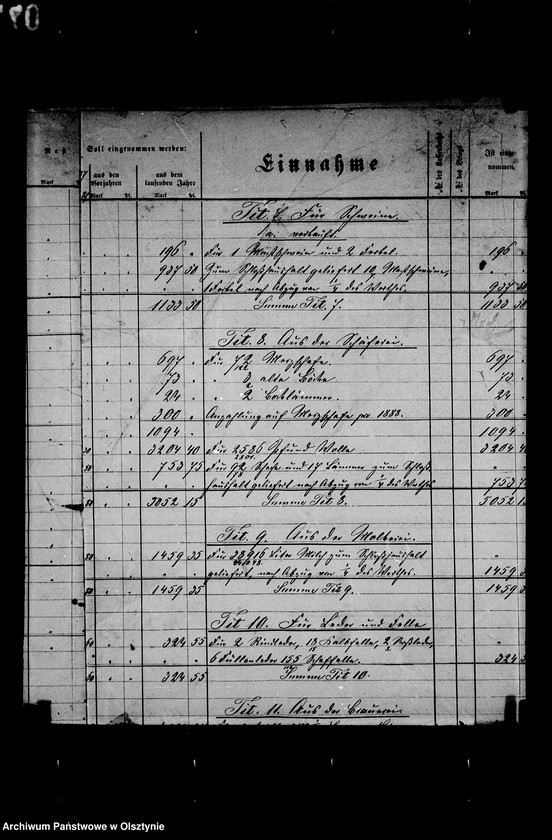 Rest
Mark
Soll eingenommen werden:
aus den Vorjahren
Mark Pf.
aus dem laufenden Jahre
Mark Pf.
Einnahme
№ der Belege
Ist einge-
nommen.
Mark Pf.
Tit. 7. Für Schweine.
a. verkauft.
196 " Für 1 Mastschwein und 2 Ferkel. 196 "
937 50 Zum Schloßhaushalt geliefert 10 Mastschweine,
1 Ferkel nach Abzug von ¼ des Werthes. 937 50
1133 50 Summe Tit. 7. 1133 50
Tit. 8. Aus der Schäferei.
697 " Für 72 Merzschafe. 697 "
73 " " 3 alte Böcke 73 "
24 " " 2 Bocklämmer. 24 "
300 " Anzahlung auf Merzschafe pr 1883. 300 "
1094 " 1094 "
3204 40 Für 2536 Pfund Wolle 3204 40
753 75 Für 92 Schafe und 17 Lämmer zum Schloß-
haushalt geliefert nach Abzug von ¼ des Werthes 753 75
5052 15 Summe Tit 8. 5052 15
Tit. 9. Aus der Molkerei.
1459 35 Für Liter Milch zum Schloßhaushalt
geliefert, nach Abzug von ¼ des Werthes. 1459
1459 35 Summe Tit 9. 1459
Tit 10. Für Leder und Felle
324 55 Für 2 Rindleder, 13 Kalbfelle, 2 Roßleder,
6 Füllenleder 155 Schaffelle. 324
324 55 Summe Tit 10.
Tit. 11. Aus der Brauerei
Archiwum Państwowe w Olsztynie